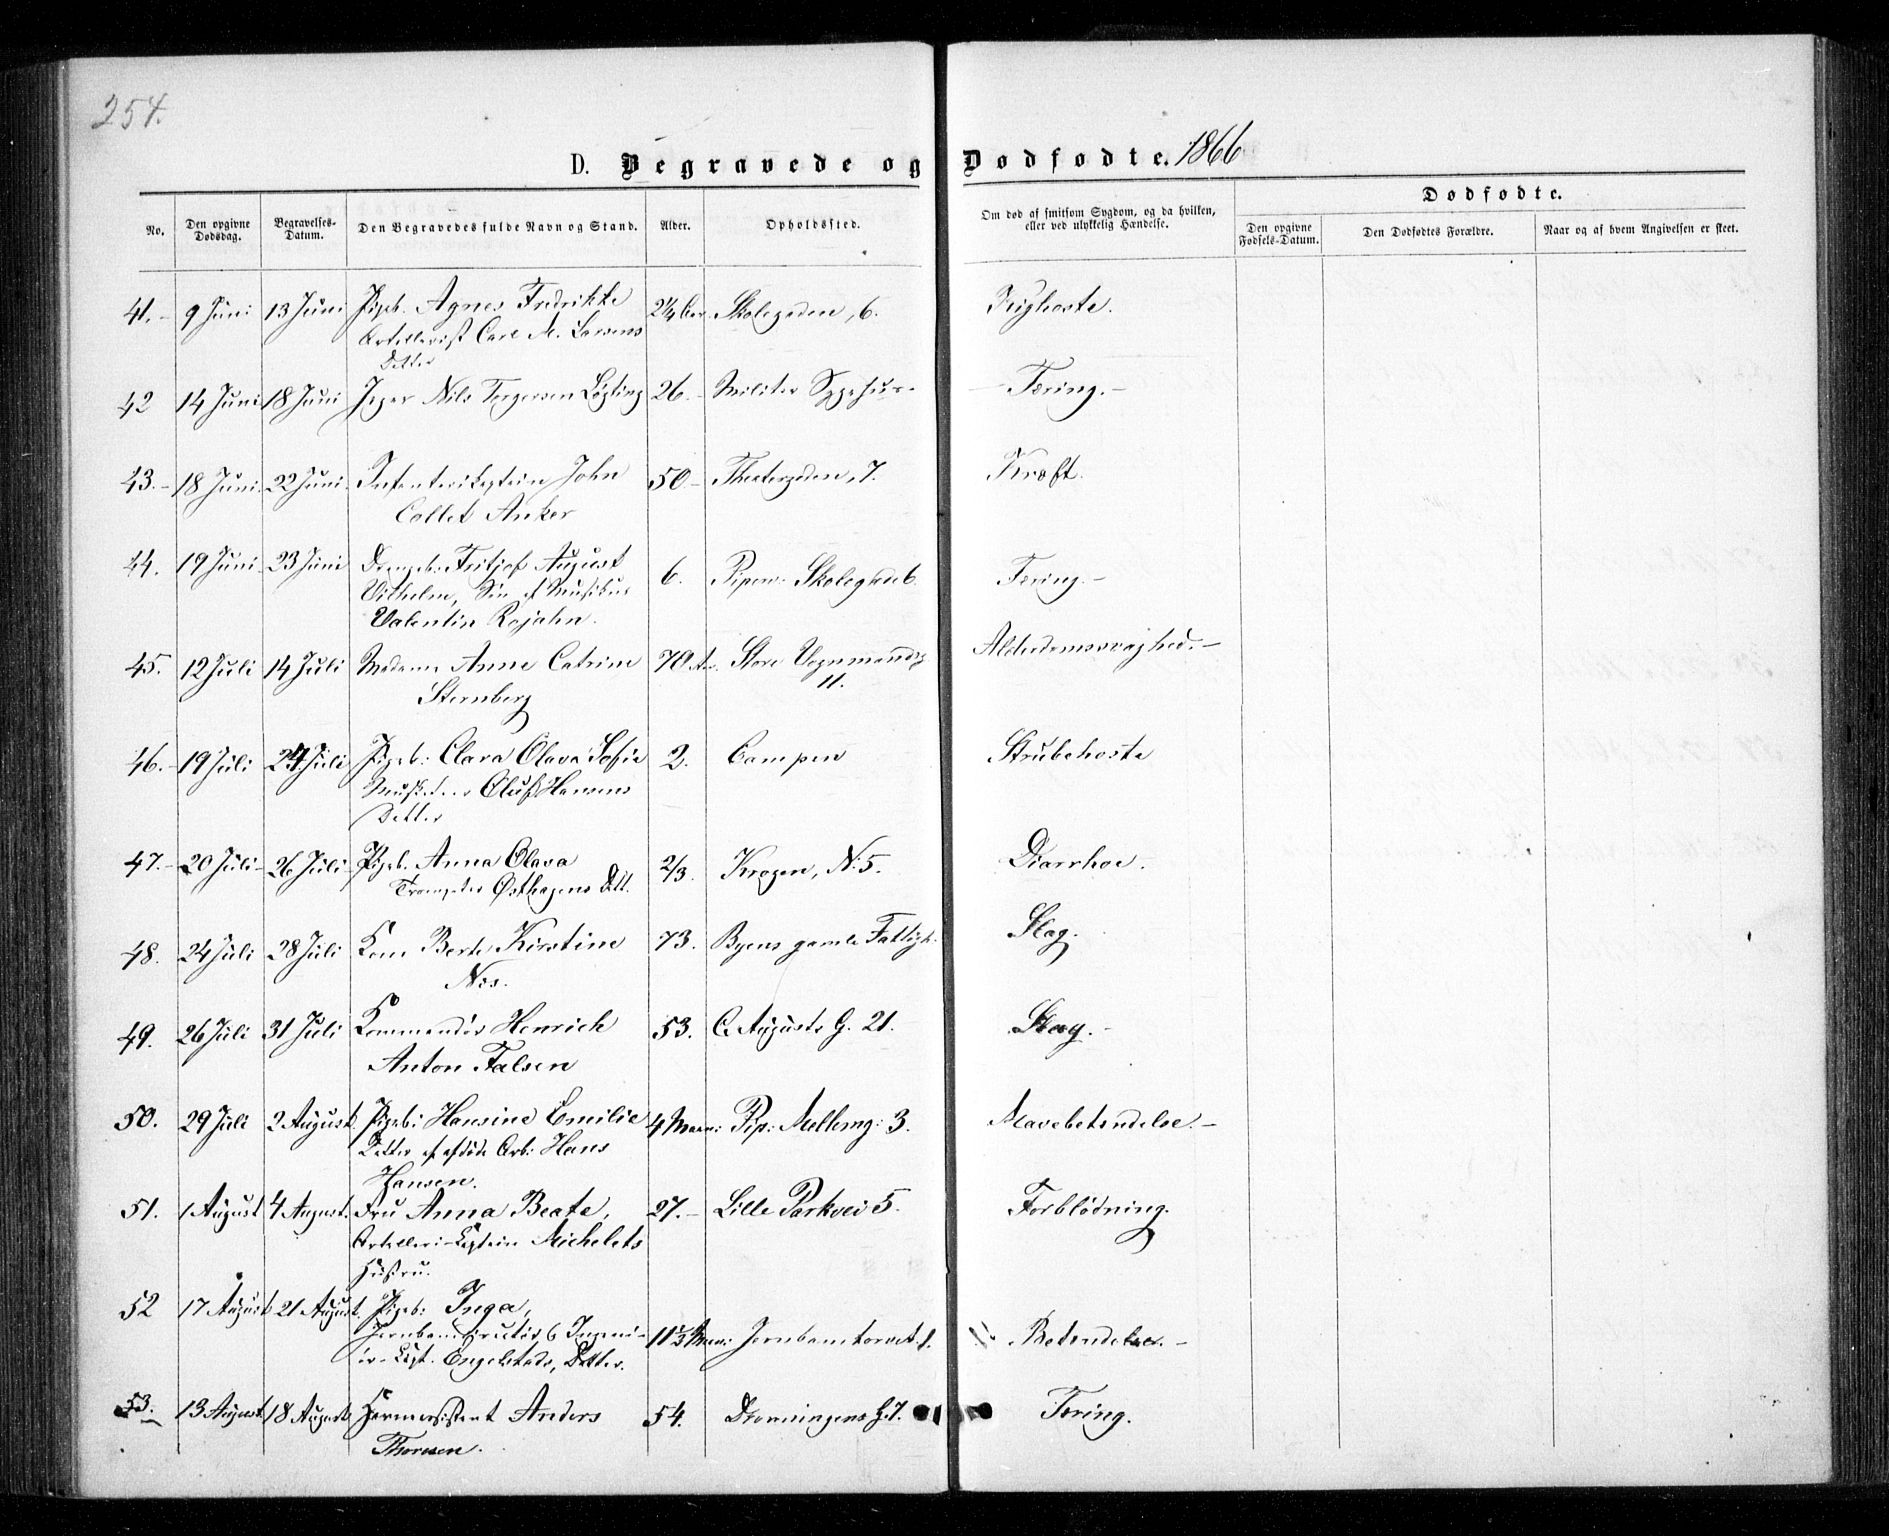 254.
D. Begravede og Dødfødte. 1866
No. Den opgivne Dødsdag. Begravelses-Datum. Den Begravedes fulde Navn og Stand. Alder. Opholdssted. Om død af smitsom Sygdom, og da hvilken, eller ved ulykkelig Hændelse.
Dødfødte.
Den opgivne Fødsels-Datum. Den Dødfødtes Forældre. Naar og af hvem Angivelsen er skeet.
41. 9 Juni 13 Juni Pigeb. Agnes Fredrikke 2¼ Skolegaden, 6. Kighoste.
Artillerist Carl M. Larsens
Datter
42 14 Juni 18 Juni Jæger Nils Torgersen 26. Militær Sygehus Tæring.
43. 18 Juni 22 Juni Infanterikaptein John 50 Theatergaden, 7. Kræft.
Collet Anker
44. 19 Juni 23 Juni Drengeb. Fritjof August 6. Piperv. Skolegade 6. Tæring.
Vilhelm, Søn af Musikus
Valentin Rojahn.
45. 12 Juli 14 Juli Madame Anne Catrine 70 Aar Store Vognmandsg. Alderdomssvaghed.
Sternberg 11.
46. 19 Juli 24 Juli Pigeb: Clara Olava Sofie 2. Campen Strubehoste
Musketeer Oluf Hansens
Datter
47. 20 Juli 26 Juli Pigeb. Anna Olava 2/3. Krogen, N: 5. Diarrhoe.
Trompeter Østhagens Datt.
48. 24 Juli 28 Juli Kone Berte Kirstine 73. Byens gamle Fattigh. Slag.
Næs.
49. 26 Juli 31 Juli Kommandør Henrich 53. C. Augusts G. 21. Slag.
Anton Falsen
50. 29 Juli 2 August Pigeb: Hansine Emilie 4 Maan: Pip: Mellemg: 3. Mavebetændelse.
Datter af afdøde Arb: Hans
Hansen.
51. 1 August 4 August. Fru Anna Beate, 27. Lille Parkvei 5. Forblødning.
Artilleri-Kaptein Michelets
Hustru.
52 17 August 21 August. Pigeb: Inga,
Jernbanedirektør & Ingeni- 11½ Maan: Jernbanetorvet 1. Betændelse.
ør-Kapt. Engelstads, Datter.
53. 13 August 18 August Anders 54. Dronningens G. 7. Tæring.
Thoresen.